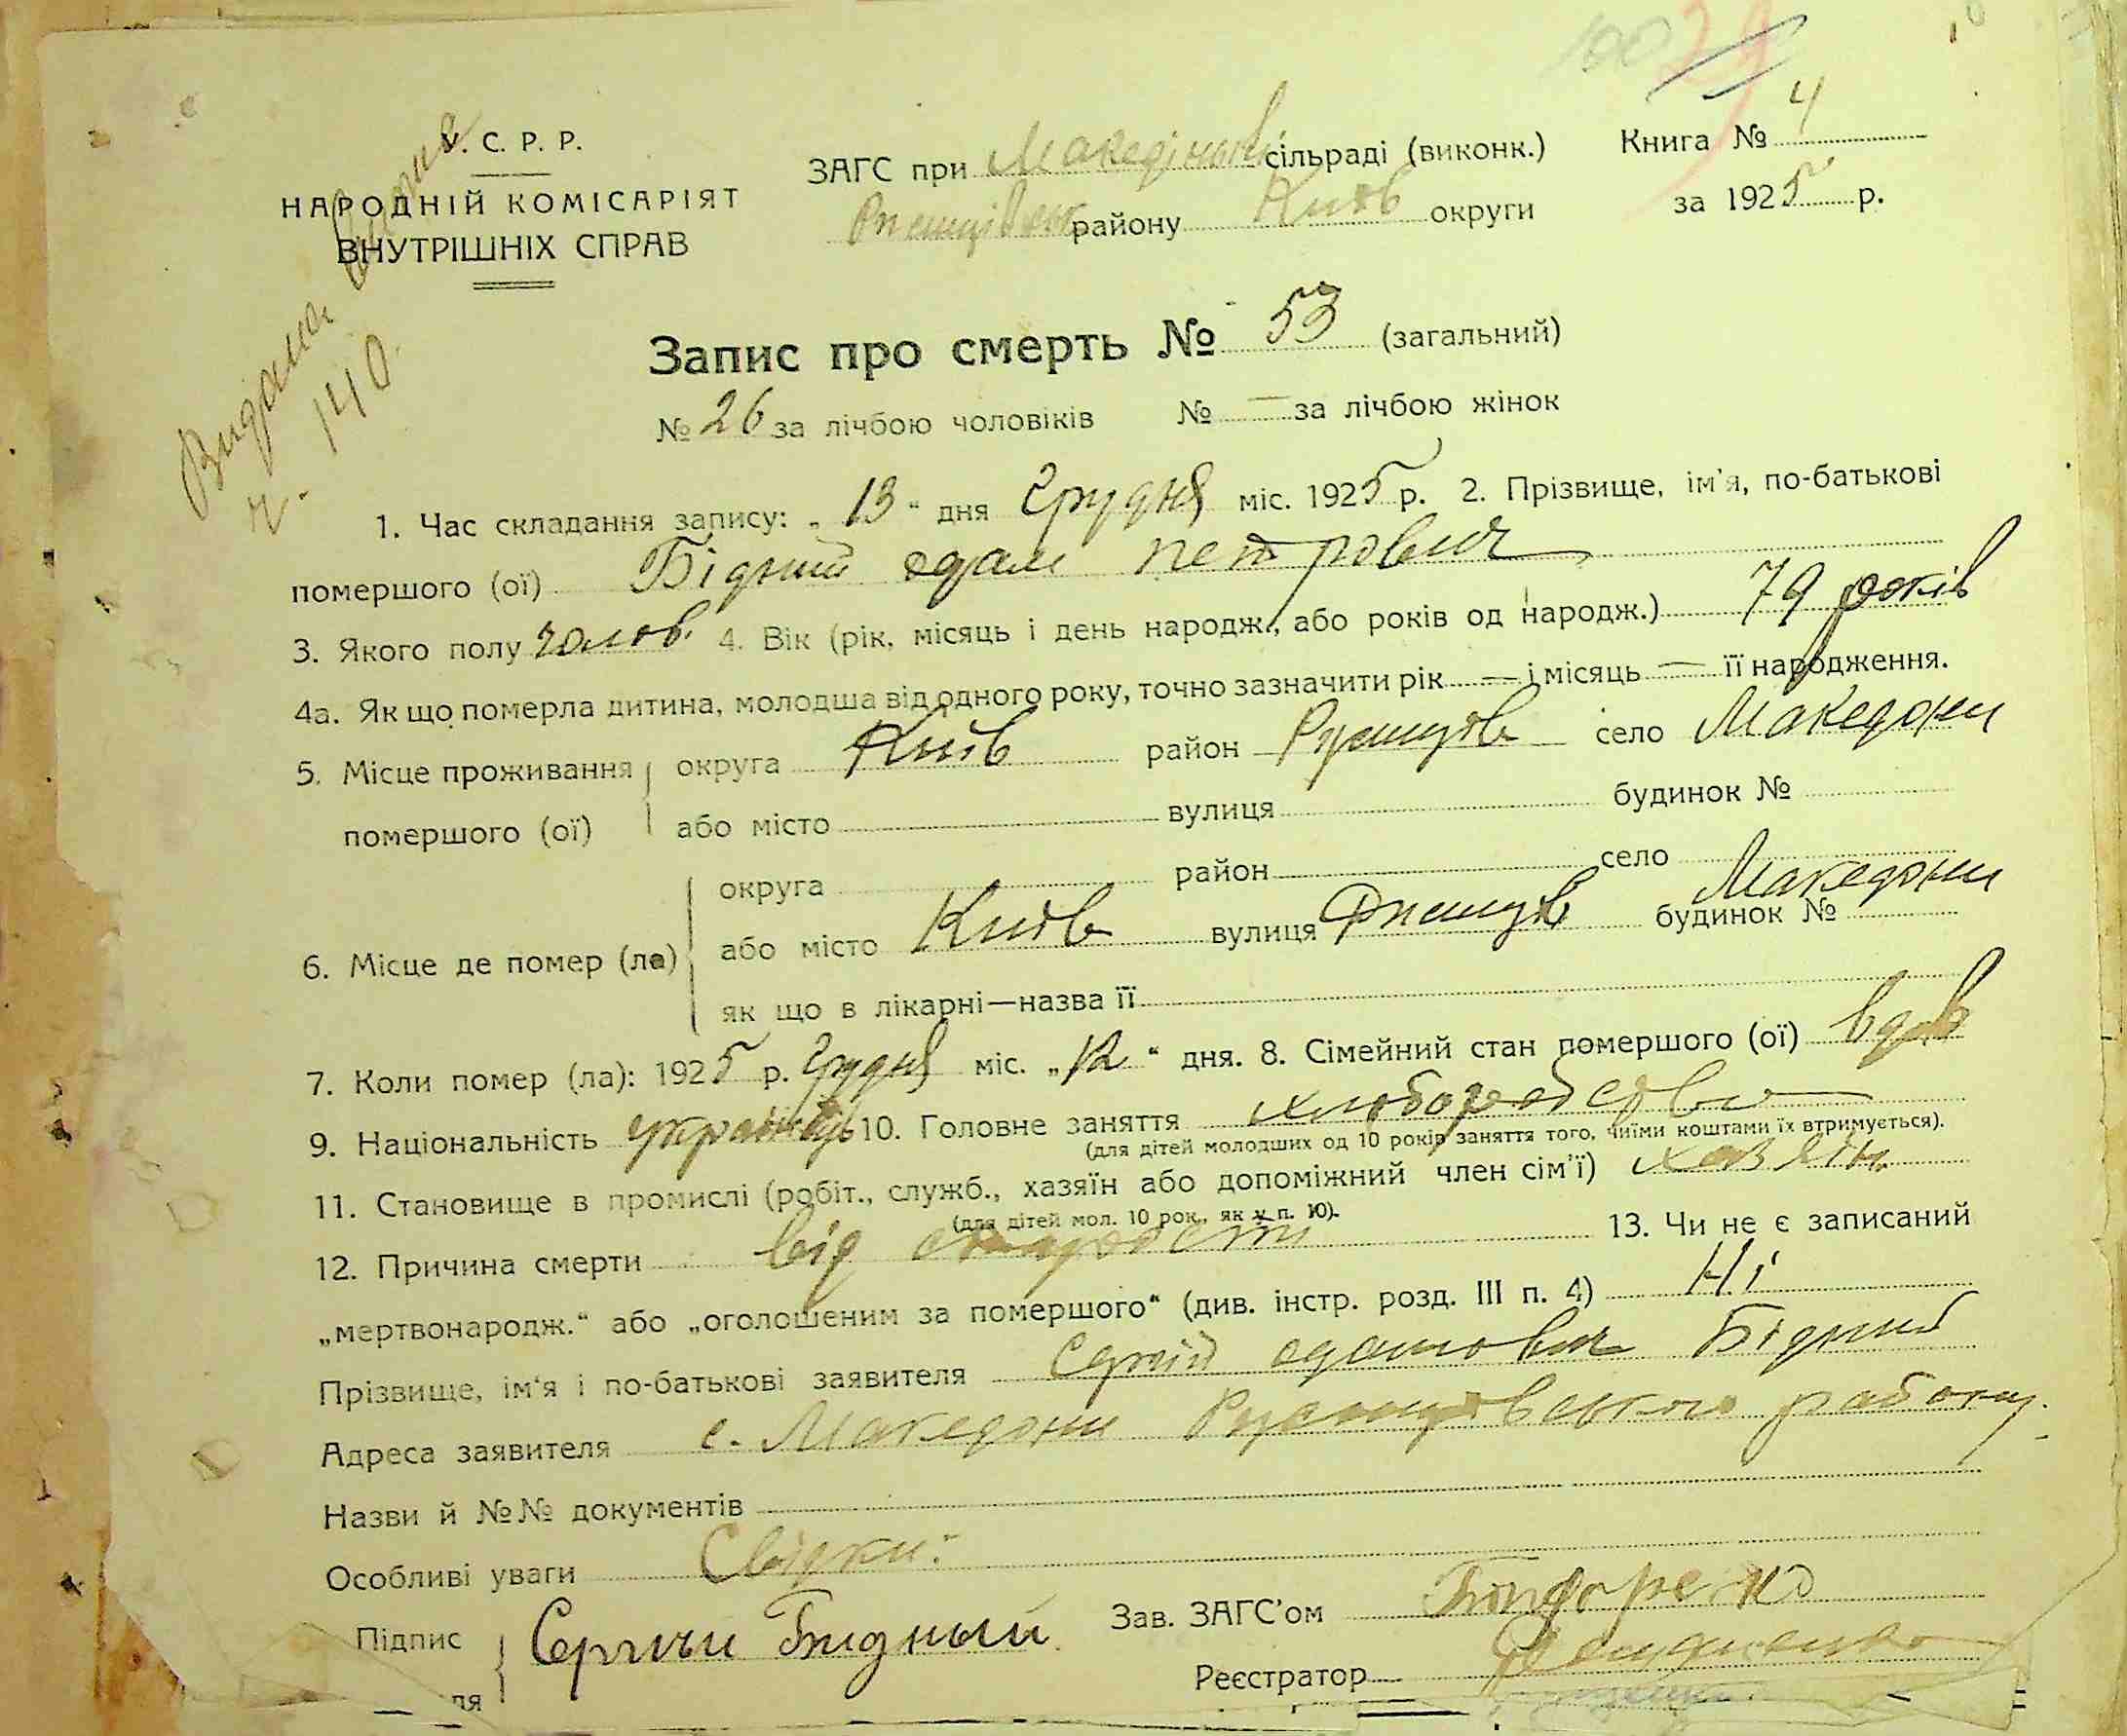 29
У. С. Р. Р.
НАРОДНІЙ КОМІСАРІЯТ
ВНУТРІШНІХ СПРАВ
Видана
ч. 140
ЗАГС при Македінській сільраді (виконк.)
району Київ округи
Книга № 4
за 1925 р.
Запис про смерть № 53 (загальний)
№ 26 за лічбою чоловіків № — за лічбою жінок
1. Час складання запису: „13“ дня Грудня міс. 1925 р. 2. Прізвище, ім'я, по-батькові
помершого (ої) Бідний адам петрович
3. Якого полу чолов. 4. Вік (рік, місяць і день народж., або років од народж.) 79 років
4а. Як що померла дитина, молодша від одного року, точно зазначити рік — і місяць — її народження.
5. Місце проживання округа Київ район Ржищів село Македони
помершого (ої) або місто вулиця будинок №
округа район село Македони
6. Місце де помер (ла) або місто Київ вулиця Ржищів будинок №
як що в лікарні—назва її
7. Коли помер (ла): 1925 р. Грудня міс. „12“ дня. 8. Сімейний стан помершого (ої) вдів
9. Національність українець 10. Головне заняття хліборобство
(для дітей молодших од 10 років заняття того, чиїми коштами їх втримується).
11. Становище в промислі (робіт., служб., хазяїн або допоміжний член сім'ї) хазяін
(для дітей мол. 10 рок., як у п. 10).
12. Причина смерти від старости 13. Чи не є записаний
„мертвонародж.“ або „оголошеним за помершого“ (див. інстр. розд. III п. 4) Ні
Прізвище, ім'я і по-батькові заявителя Сергій адамович Бідний
Адреса заявителя с. Македони Ржищівського району.
Назви й №№ документів
Особливі уваги Свідки:
Підпис Сергии Бидный Зав. ЗАГС'ом
ля Реєстратор